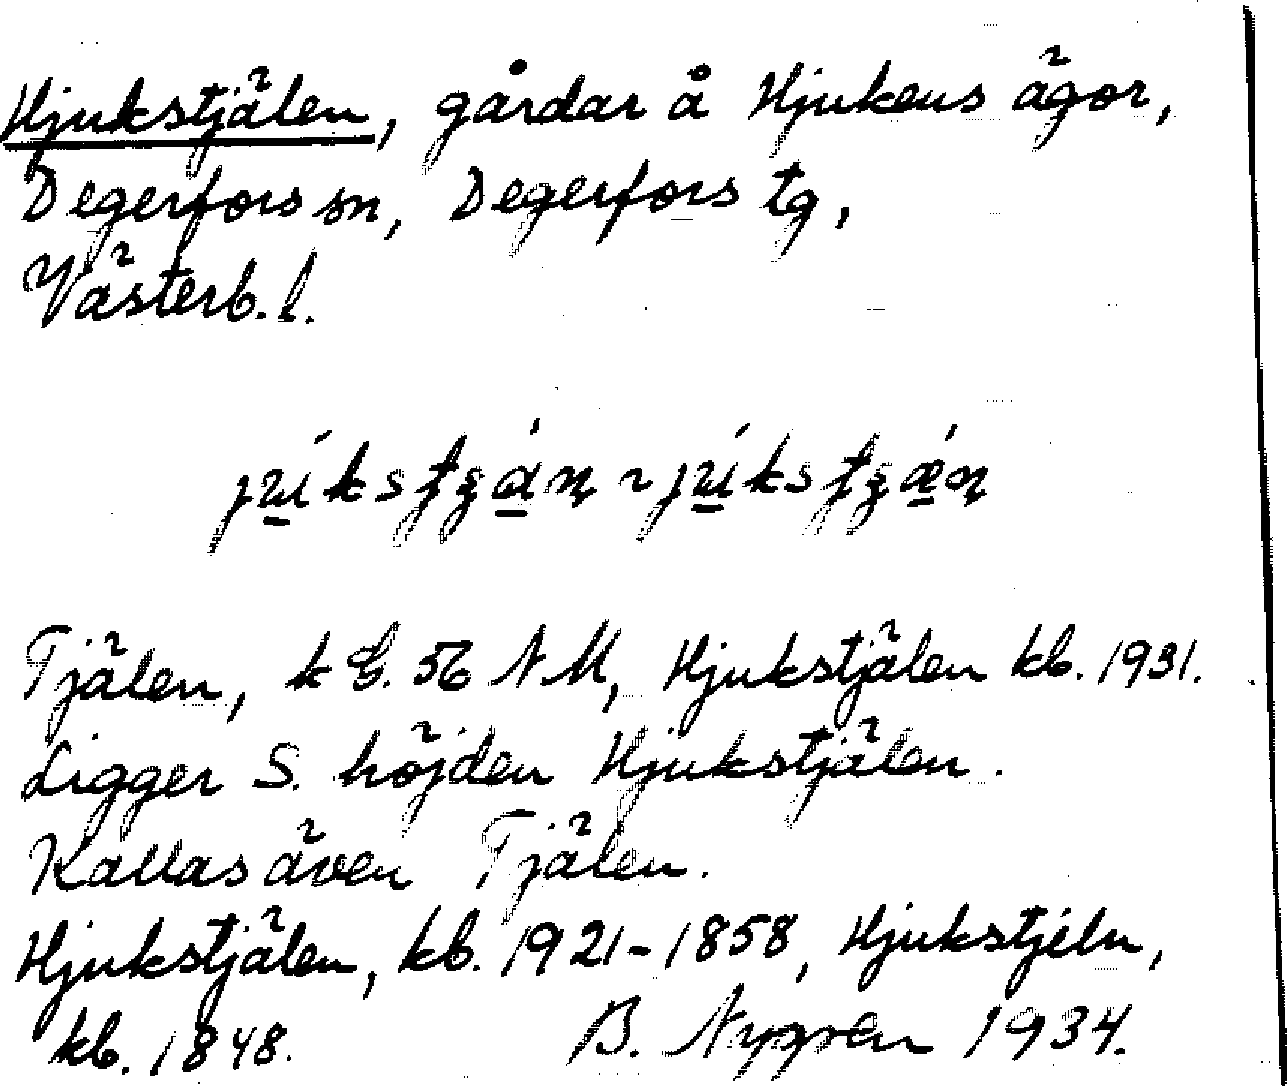 Hjukstjälen, gårdar å Hjukens ägor,
Degerfors sn, Degerfors tg,
Västerb. l.
Tjälen, k G. 56 NM, Hjukstjälen kb. 1931.
Ligger S. höjden Hjukstjälen.
Kallas även Tjälen.
Hjukstjälen, kb. 1921-1858, Hjukstjéln,
kb. 1848. B. Nygren 1934.